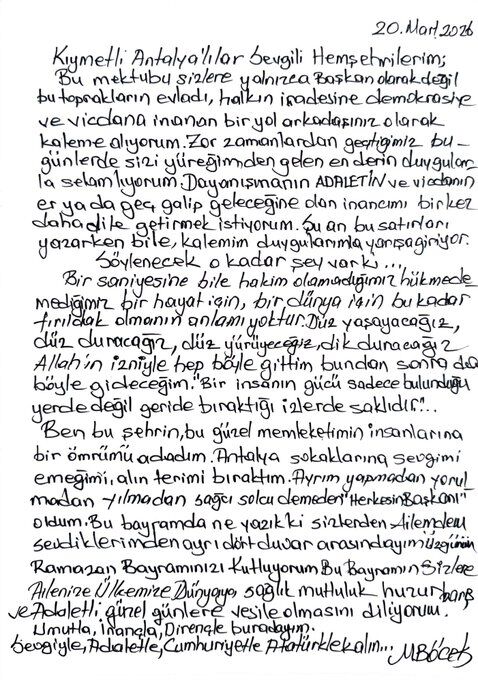 20. Mart 2026
Kıymetli Antalya'lılar Sevgili Hemşehrilerim;
Bu mektubu sizlere yalnızca Başkan olarak değil
bu toprakların evladı, halkın iradesine demokrasiye
ve vicdana inanan bir yol arkadaşınız olarak
kaleme alıyorum. Zor zamanlardan geçtiğimiz bu-
günlerde sizi yüreğimden gelen en derin duygular
la selamlıyorum. Dayanışmanın ADALETİN ve vicdanın
er ya da geç galip geleceğine olan inancımı bir kez
daha dile getirmek istiyorum. Şu an bu satırları
yazarken bile, kalemim duygularımla yarışa giriyor.
Söylenecek o kadar şey var ki...
Bir saniyesine bile hakim olamadığımız hükmede
mediğimiz bir hayat için, bir dünya için bu kadar
fırıldak olmanın anlamı yoktur. Düz yaşayacağız,
düz duracağız, düz yürüyeceğiz, dik duracağız
Allah'ın izniyle hep böyle gittim bundan sonra da
böyle gideceğim. "Bir insanın gücü sadece bulunduğu
yerde değil geride bıraktığı izlerde saklıdır"...
Ben bu şehrin, bu güzel memleketimin insanlarına
bir ömrümü adadım. Antalya sokaklarına sevgimi
emeğimi, alın terimi bıraktım. Ayrım yapmadan yorul
madan yılmadan sağcı solcu demeden "Herkesin Başkanı"
oldum. Bu bayramda ne yazık ki sizlerden Ailemden
sevdiklerimden ayrı dört duvar arasındayım üzgünüm
Ramazan Bayramınızı Kutluyorum Bu Bayramın Sizlere
Ailenize Ülkemize Dünyaya sağlık mutluluk huzur barış
ve Adaletli güzel günlere vesile olmasını diliyorum.
Umutla, inançla, Dirençle buradayım.
Sevgiyle, Adaletle, Cumhuriyetle Atatürkle kalın... MBöcek